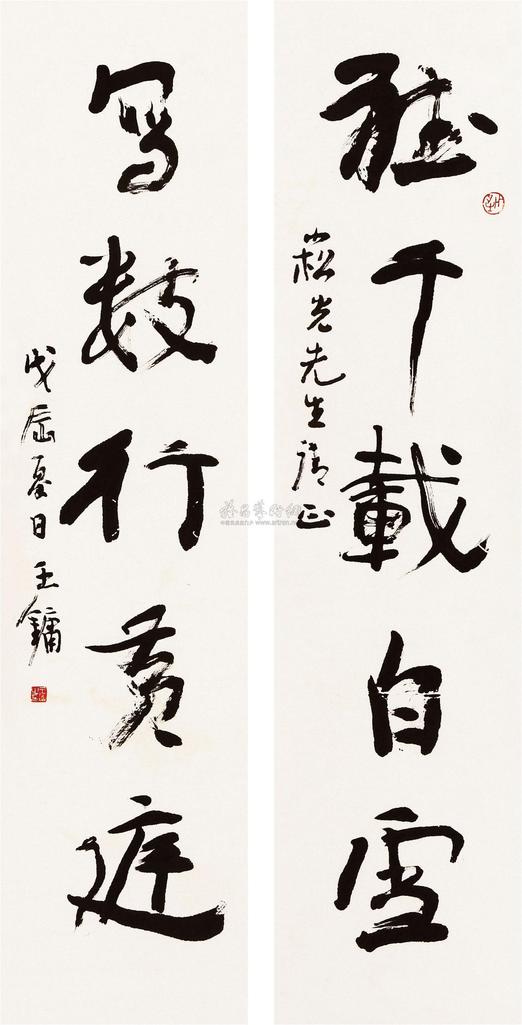 聽千載白雪
崧光先生請正
寫數行黃庭
戊辰夏日王鏞